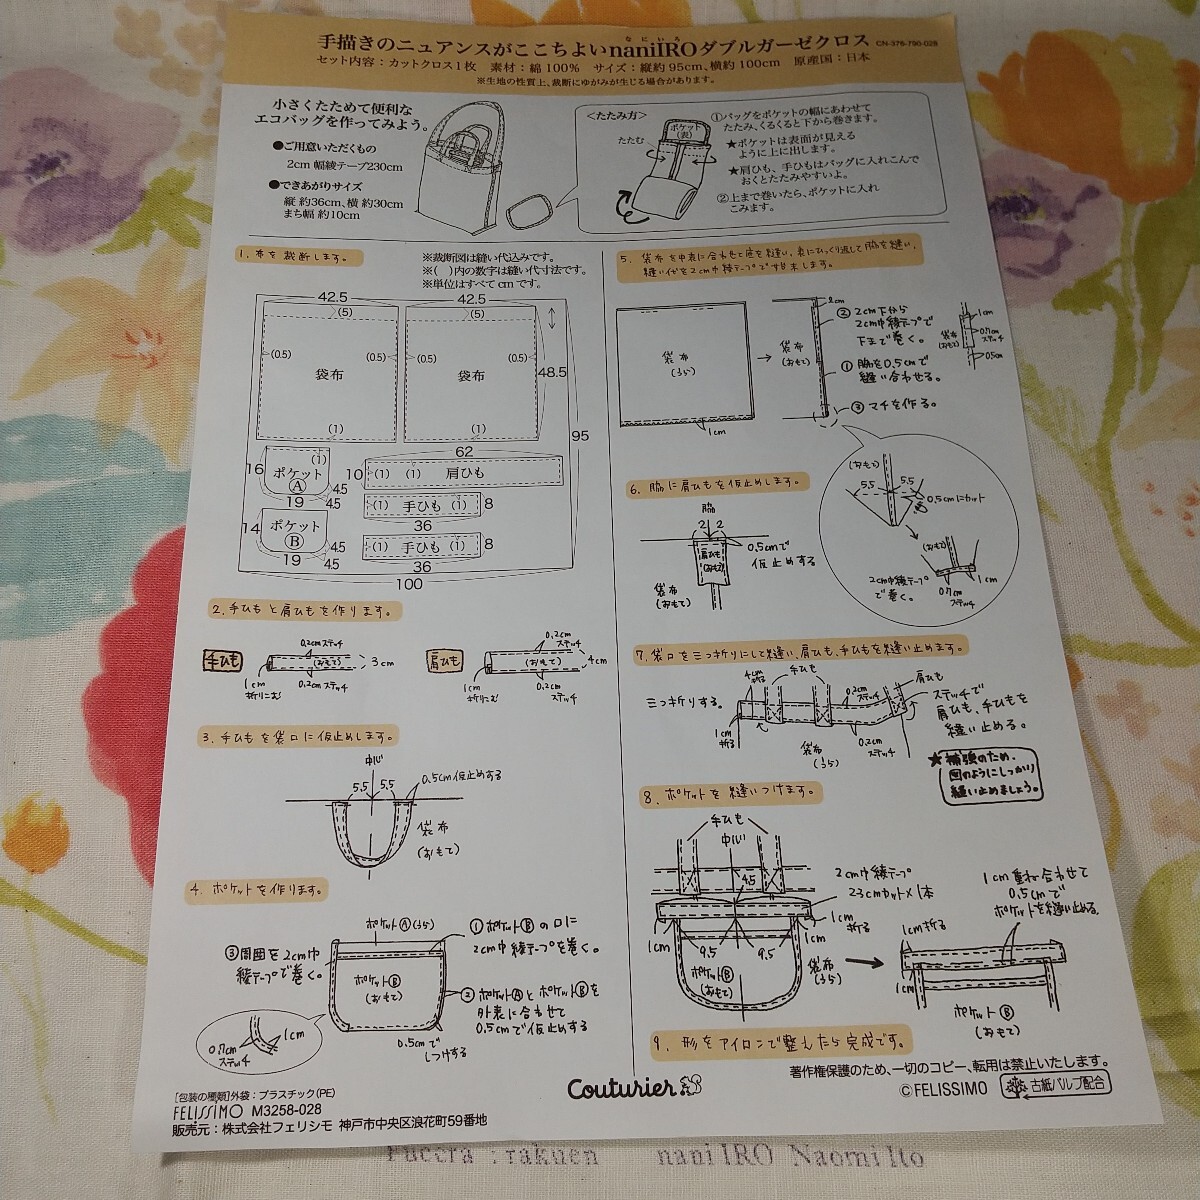 なにいろ
手描きのニュアンスがここちよいnaniIROダブルガーゼクロス CN-376-790-028
セット内容：カットクロス1枚 素材：綿 100% サイズ：縦約 95cm、横約 100cm 原産国：日本
※生地の性質上、裁断にゆがみが生じる場合があります。
小さくたためて便利な
エコバッグを作ってみよう。
●ご用意いただくもの
2cm 幅綾テープ230cm
●できあがりサイズ
縦 約36cm、横 約30cm
まち幅 約10cm
<たたみ方>
たたむ
ポケット
(表)
①バッグをポケットの幅にあわせて
たたみ、くるくると下から巻きます。
★ポケットは表面が見える
ように上に出します。
★肩ひも、手ひもはバッグに入れこんで
おくとたたみやすいよ。
②上まで巻いたら、ポケットに入れ
こみます。
1. 布を裁断します。
※裁断図は縫い代込みです。
※( )内の数字は縫い代寸法です。
※単位はすべて cm です。
42.5 42.5
(5) (5)
(0.5) (0.5) (0.5) (0.5)
袋布 袋布
48.5
(1) (1)
95
16 (1)
ポケット
Ⓐ
4.5
19 4.5
14 ポケット
Ⓑ
4.5
19 4.5
62
10 (1) (1) 肩ひも
(1) 手ひも (1) 8
36
(1) 手ひも (1) 8
36
100
2. 手ひもと肩ひもを作ります。
手ひも
0.2cm ステッチ
(おもて) 3cm
1cm
折りこむ
0.2cm ステッチ
肩ひも
0.2cm
ステッチ
(おもて) 4cm
1cm
折りこむ
0.2cm
ステッチ
3. 手ひもを袋口に仮止めします。
中心
5.5 5.5
0.5cm 仮止めする
袋布
(おもて)
4. ポケットを作ります。
ポケットⒶ(うら)
①ポケットⒷの口に
2cm巾綾テープを巻く。
③周囲を2cm巾
綾テープで巻く。
ポケットⒷ
(おもて)
②ポケットⒶとポケットⒷを
外表に合わせて
0.5cmで仮止めする
0.5cmで
しつけする
1cm
0.7cm
ステッチ
5. 袋布を中表に合わせて底を縫い、表にひっくり返して脇を縫い、
縫い代を2cm巾綾テープで始末します。
袋布
(うら)
1cm
2cm
袋布
(おもて)
②2cm下から
2cm巾綾テープで
下まで巻く。
①脇を0.5cmで
縫い合わせる。
③マチを作る。
袋布
(おもて)
1cm
0.7cm
ステッチ
0.5cm
(おもて)
5.5 5.5
0.5cmにカット
(おもて)
2cm巾綾テープ
で巻く。
1cm
0.7cm
ステッチ
6. 脇に肩ひもを仮止めします。
脇
2 2
肩ひも
(おもて)
0.5cmで
仮止めする
袋布
(おもて)
7. 袋口を三つ折りにして縫い、肩ひも、手ひもを縫い止めます。
三つ折りする。
4cm
折る
手ひも
0.2cm
ステッチ
肩ひも
ステッチで
肩ひも、手ひもを
縫い止める。
1cm
折る
袋布
(うら)
0.2cm
ステッチ
★補強のため、
図のようにしっかり
縫い止めましょう。
8. ポケットを縫いつけます。
手ひも
中心
4.5
2cm巾綾テープ
23cmカット×1本
1cm
折る
1cm
9.5 9.5
1cm
ポケットⒷ
(おもて)
袋布
(うら)
1cm重ね合わせて
0.5cmで
ポケットを縫い止める。
1cm折る
1cm
ポケットⒷ
(おもて)
9. 形をアイロンで整えたら完成です。
著作権保護のため、一切のコピー、転用は禁止いたします。
©FELISSIMO 古紙パルプ配合
Couturier
[包装の種類]外袋：プラスチック(PE)
FELISSIMO M3258-028
販売元：株式会社フェリシモ 神戸市中央区浪花町59番地
Fuccra : rakuen nani IRO Naomi Ito